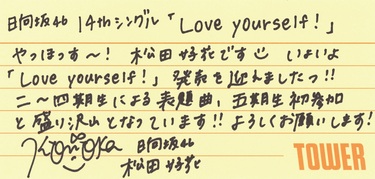 日向坂46 14thシングル「Love yourself!」
やっほっす〜! 松田好花です☺ いよいよ
「Love yourself!」発売を迎えましたっ!!
二〜四期生による表題曲、五期生初参加
と盛り沢山となっています!! よろしくお願いします!
日向坂46
松田好花
TOWER